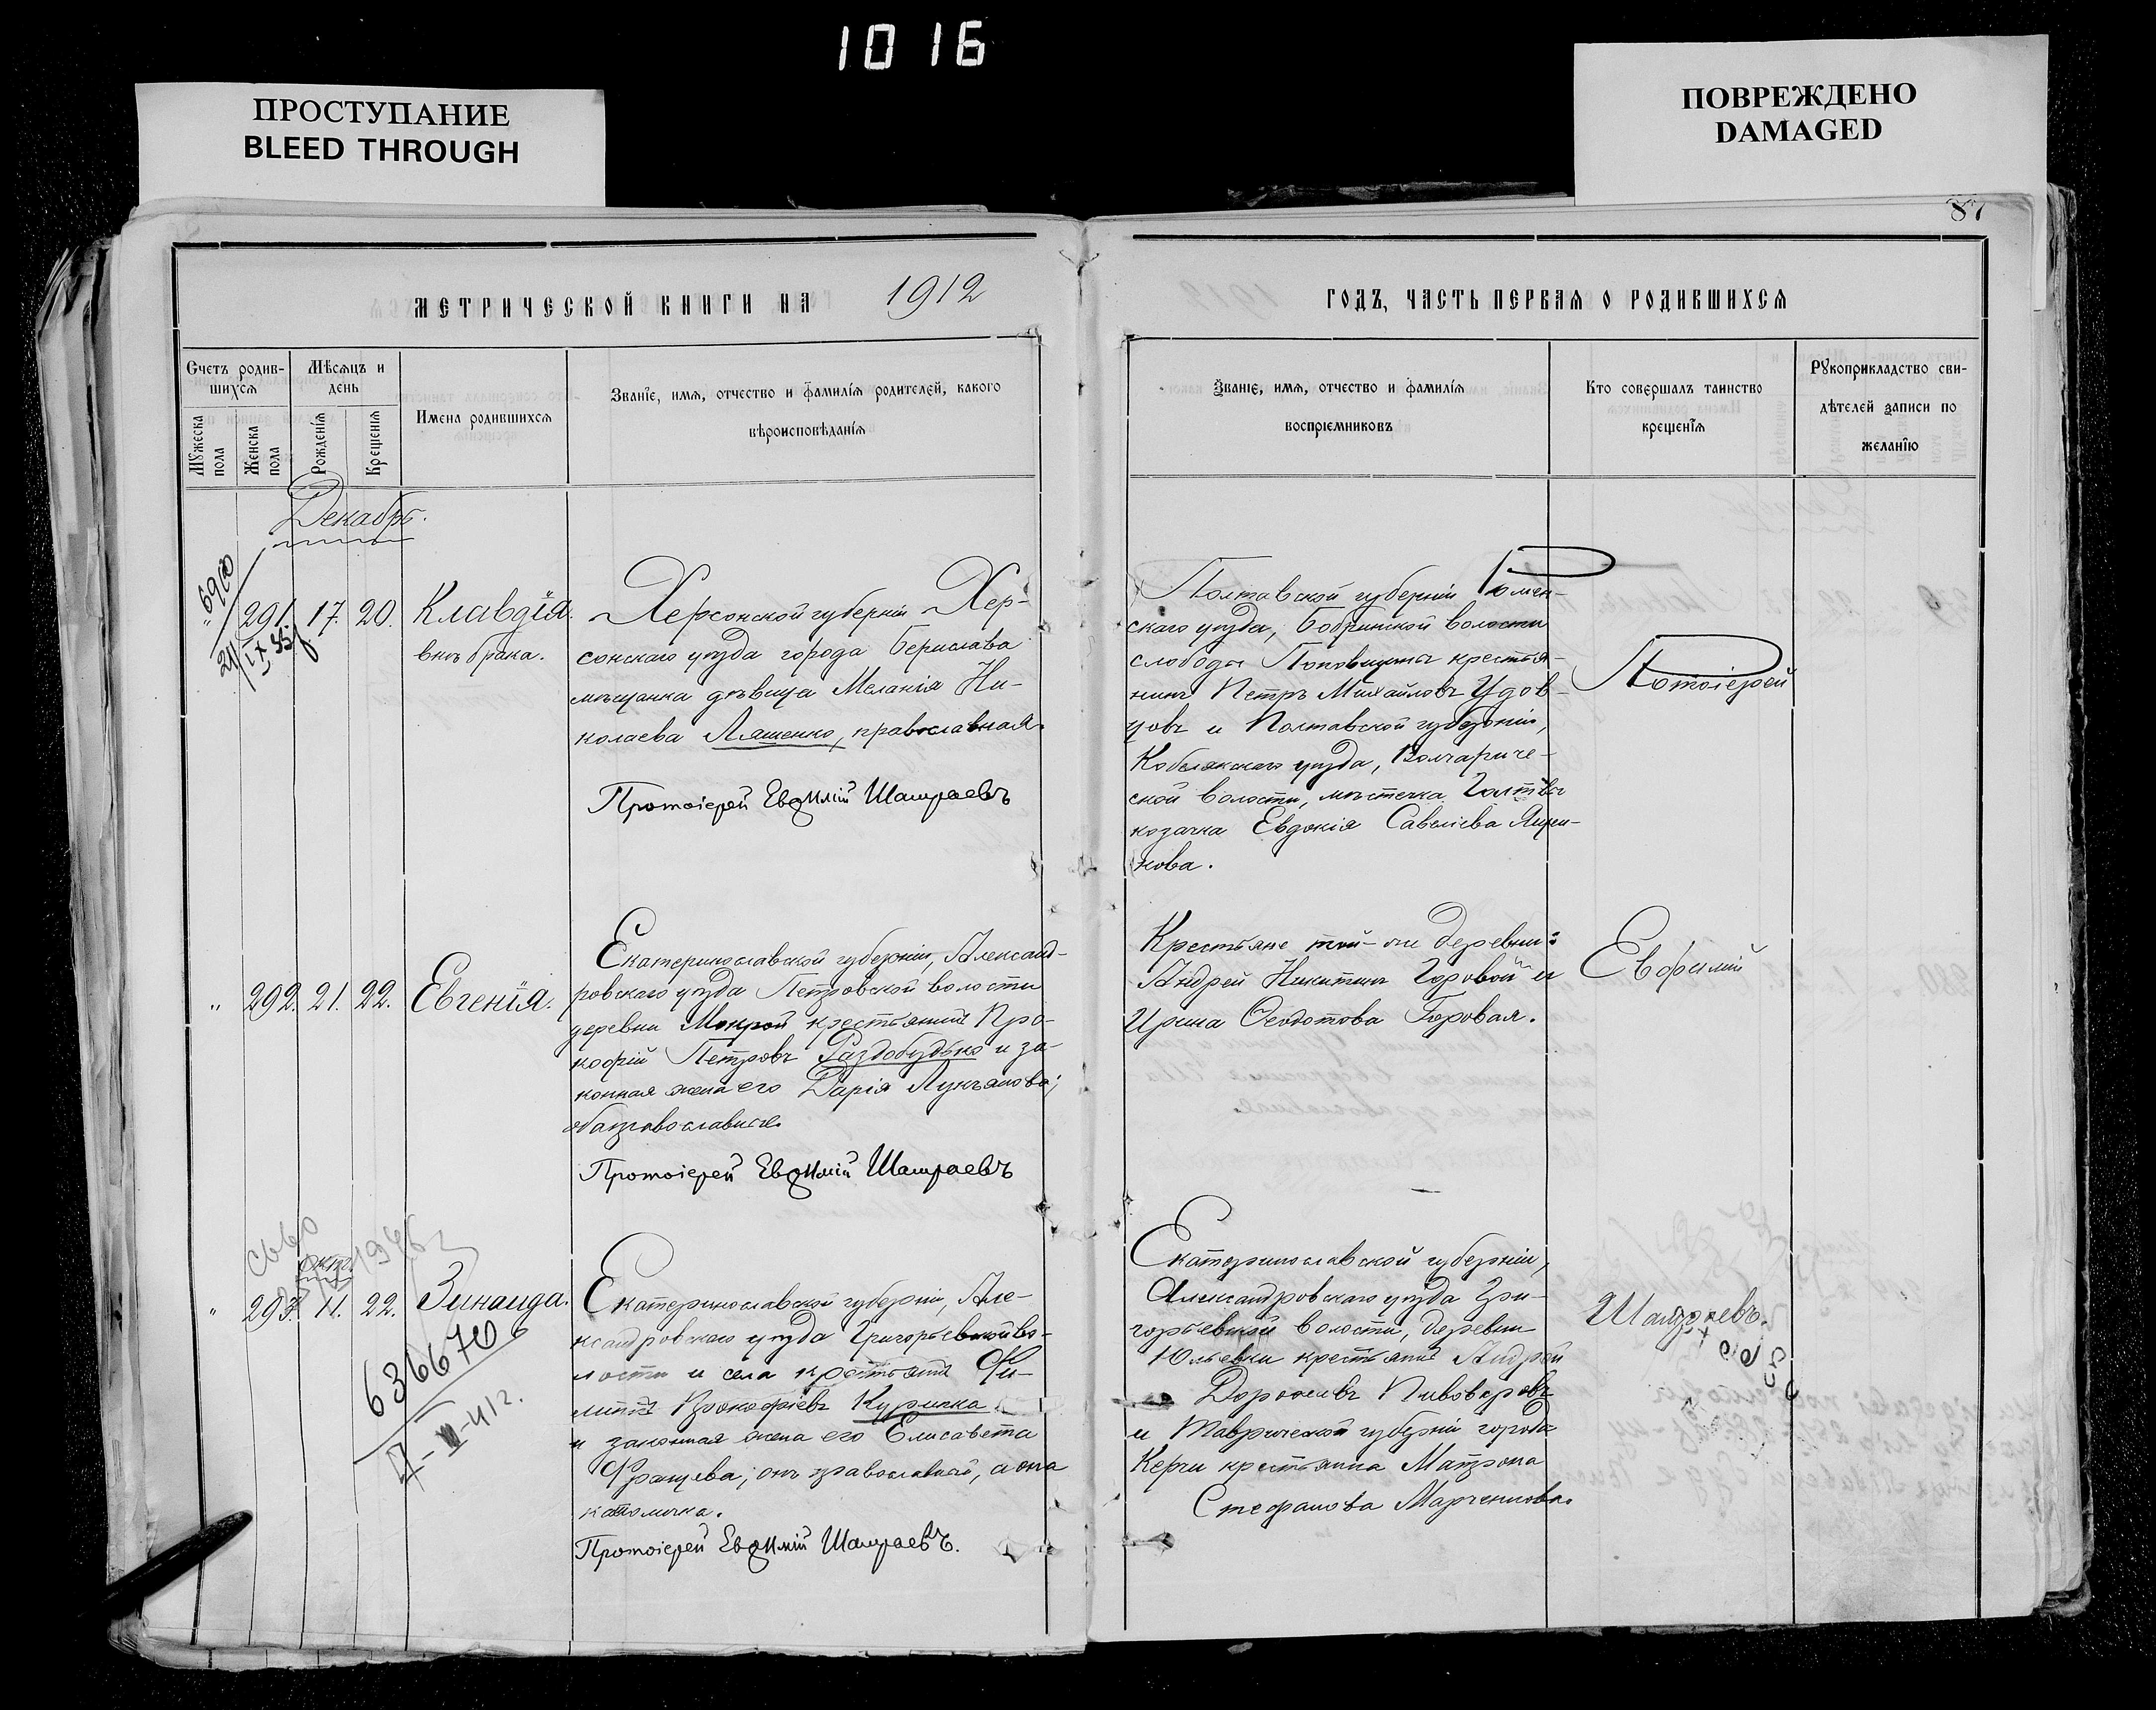 1016
ПРОСТУПАНИЕ
BLEED THROUGH
ПОВРЕЖДЕНО
DAMAGED
87
МЕТРИЧЕСКОЙ КНИГИ НА 1912
ГОДЪ, ЧАСТЬ ПЕРВАЯ О РОДИВШИХСЯ
Счетъ родив-
шихся
Мужеска
пола
Женска
пола
Мѣсяцъ и
день
Рожденія
Крещенія
Имена родившихся
Званіе, имя, отчество и фамилія родителей, какого
вѣроисповѣданія
Званіе, имя, отчество и фамилія
воспріемниковъ
Кто совершалъ таинство
крещенія
Рукоприкладство сви-
дѣтелей записи по
желанію
Декабрь.
" 291. 17. 20. Клавдія.
внѣ брака.
Херсонской губерніи Хер-
сонскаго уѣзда города Берислава
мѣщанка дѣвица Меланія Ни-
колаева Ляшенко, православная.
Протоіерей Евѳимій Шамраевъ
Полтавской губерніи Ромен-
скаго уѣзда, Бобринской волости
слободы Поповщины крестья-
нинъ Петръ Михайловъ Удов-
и Полтавской губерніи,
Кобелякскаго уѣзда,
ской волости, мѣстечка
козачка Евдокія Савеліева
кова.
Протоіерей
" 292. 21. 22. Евгенія.
Екатеринославской губерніи, Александ-
ровскаго уѣзда Петровской волости
деревни Мокрой крестьянинъ Про-
кофій Петровъ Раздобудько и за-
конная жена его Дарія Лукьянова;
оба православные.
Протоіерей Евѳимій Шамраевъ
Крестьяне той-же деревни:
Андрей Никитинъ Горовой и
Ирина Ѳеодотова Горовая.
Евфимій
1946
Окто.
" 293. 11. 22. Зинаида.
636670
Екатеринославской губерніи, Але-
ксандровскаго уѣзда Григорьевской во-
лости и села крестьянинъ Фи-
липпъ Прокофіевъ Куричка
и законная жена его Елисавета
Францева; онъ православный, а она
католичка.
Протоіерей Евѳимій Шамраевъ.
Екатеринославской губерніи,
Александровскаго уѣзда Гри-
горьевской волости, деревни
Юльевки крестьянинъ Андрей
Дороѳеевъ Пивоваровъ
и Таврической губерніи города
Керчи крестьянка Матрона
Стефанова Марченкова.
Шамраевъ.